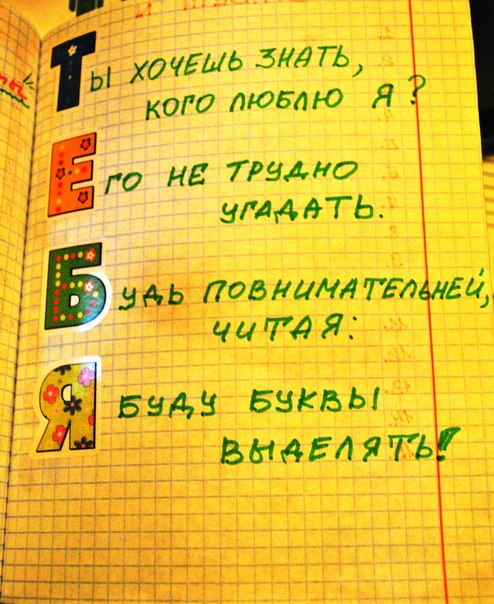 Ты хочешь знать,
кого люблю я?
Его не трудно
угадать.
Будь повнимательней,
читая:
Я буду буквы
выделять!